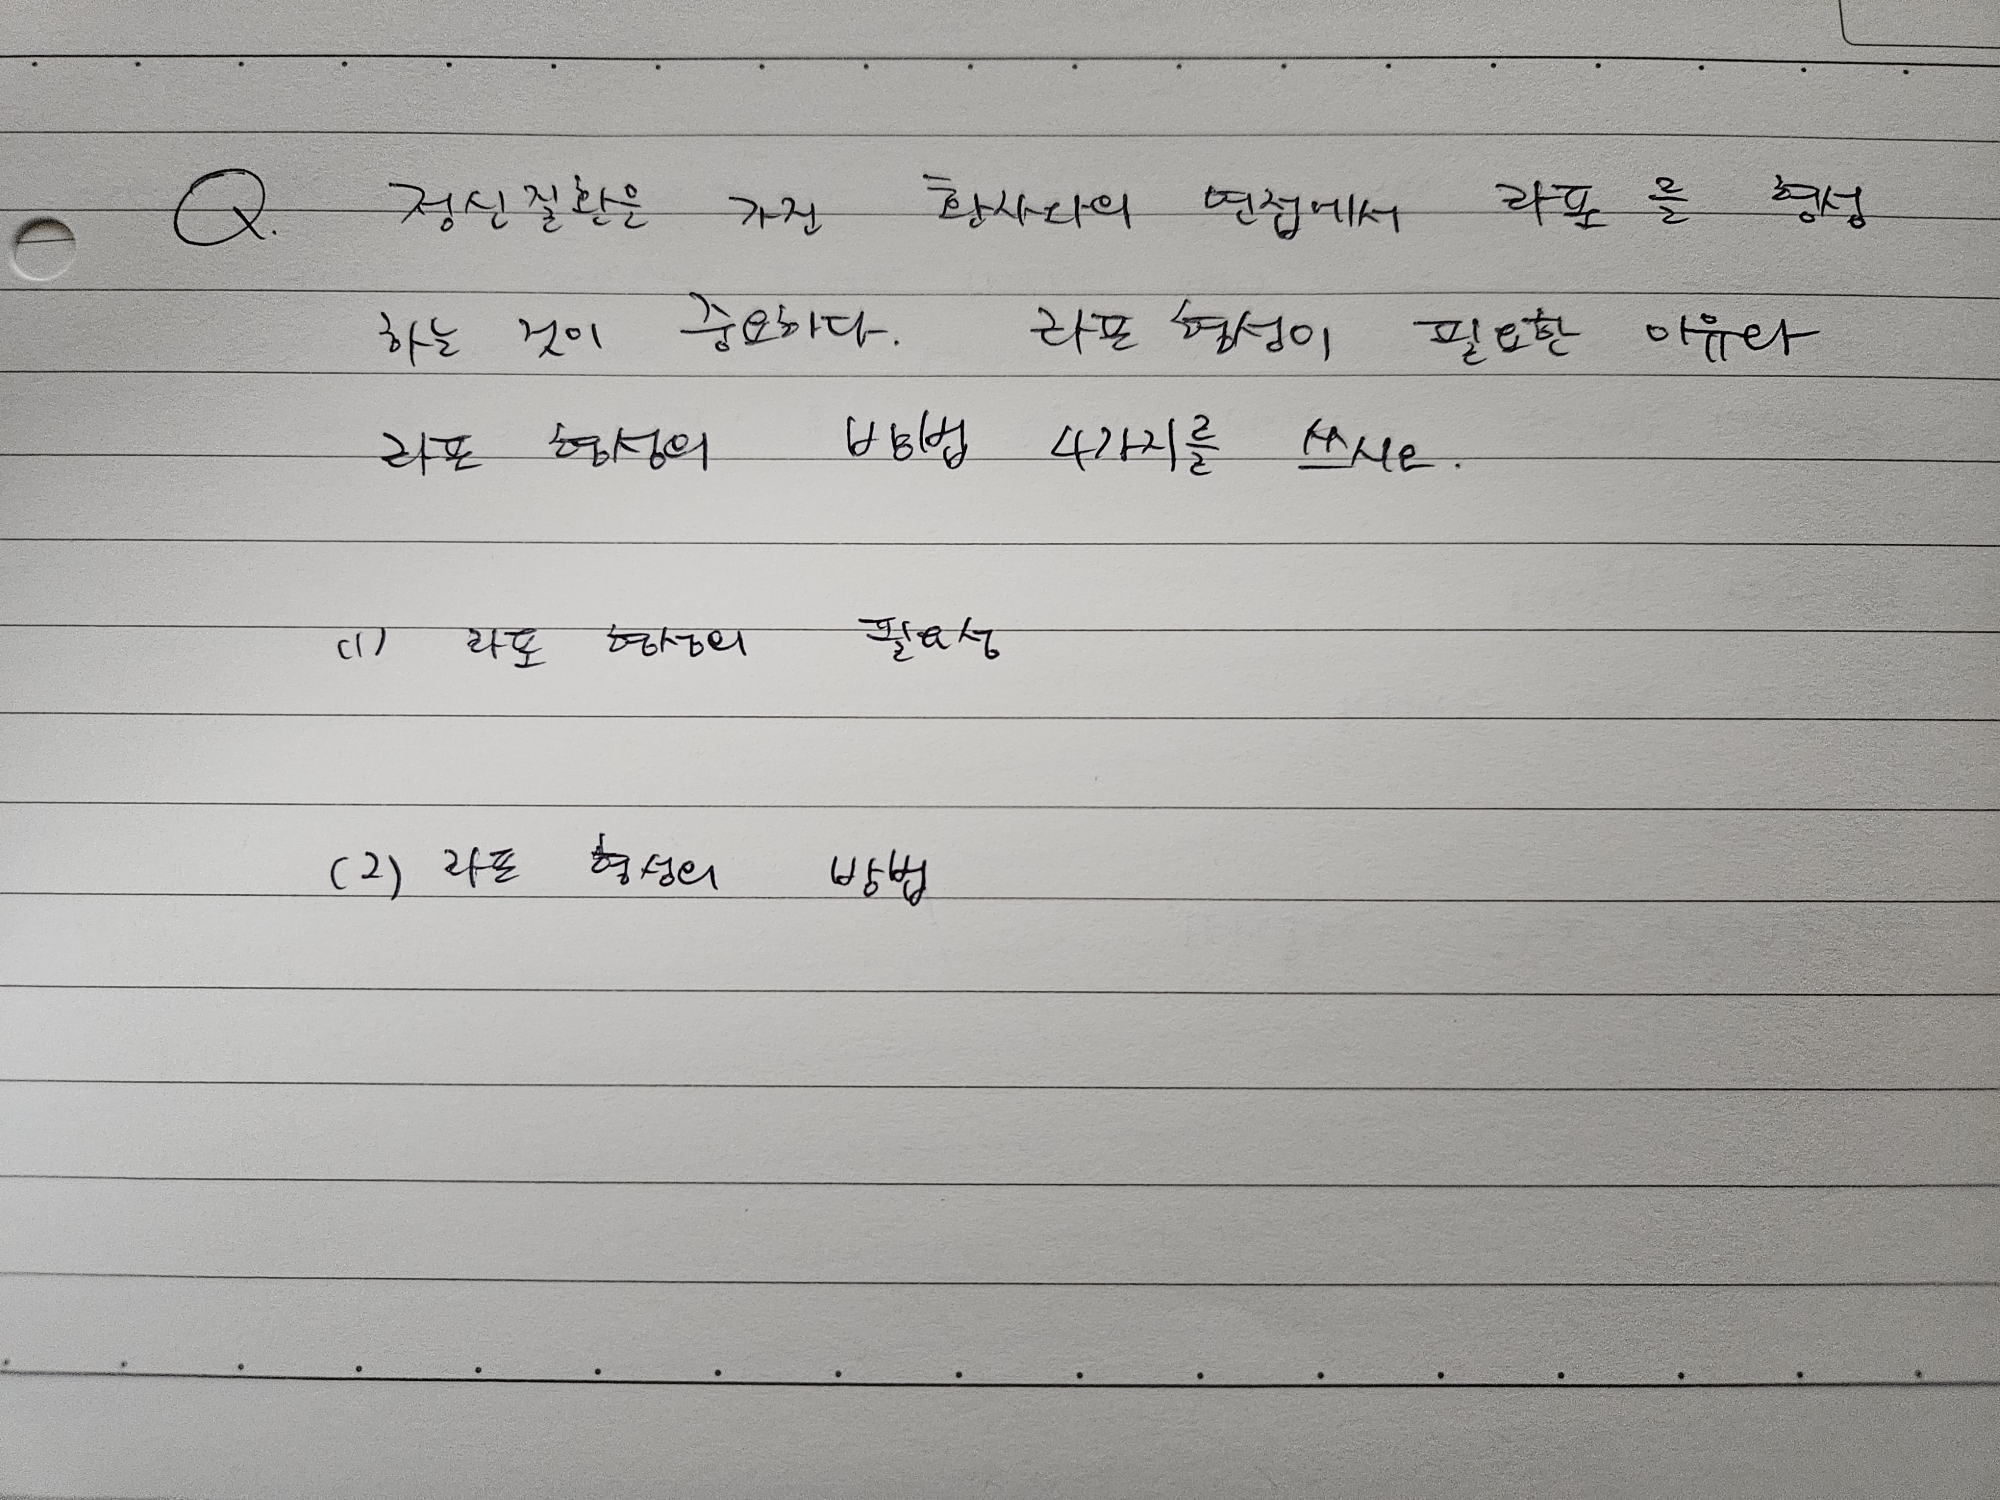 Q. 정신질환은 가진 환사다의 면접에서 라포를 형성
하는 것이 중요하다. 라포 형성이 필요한 이유와
라포 형성의 방법 4가지를 쓰시오.
(1) 라포 형성의 필요성
(2) 라포 형성의 방법